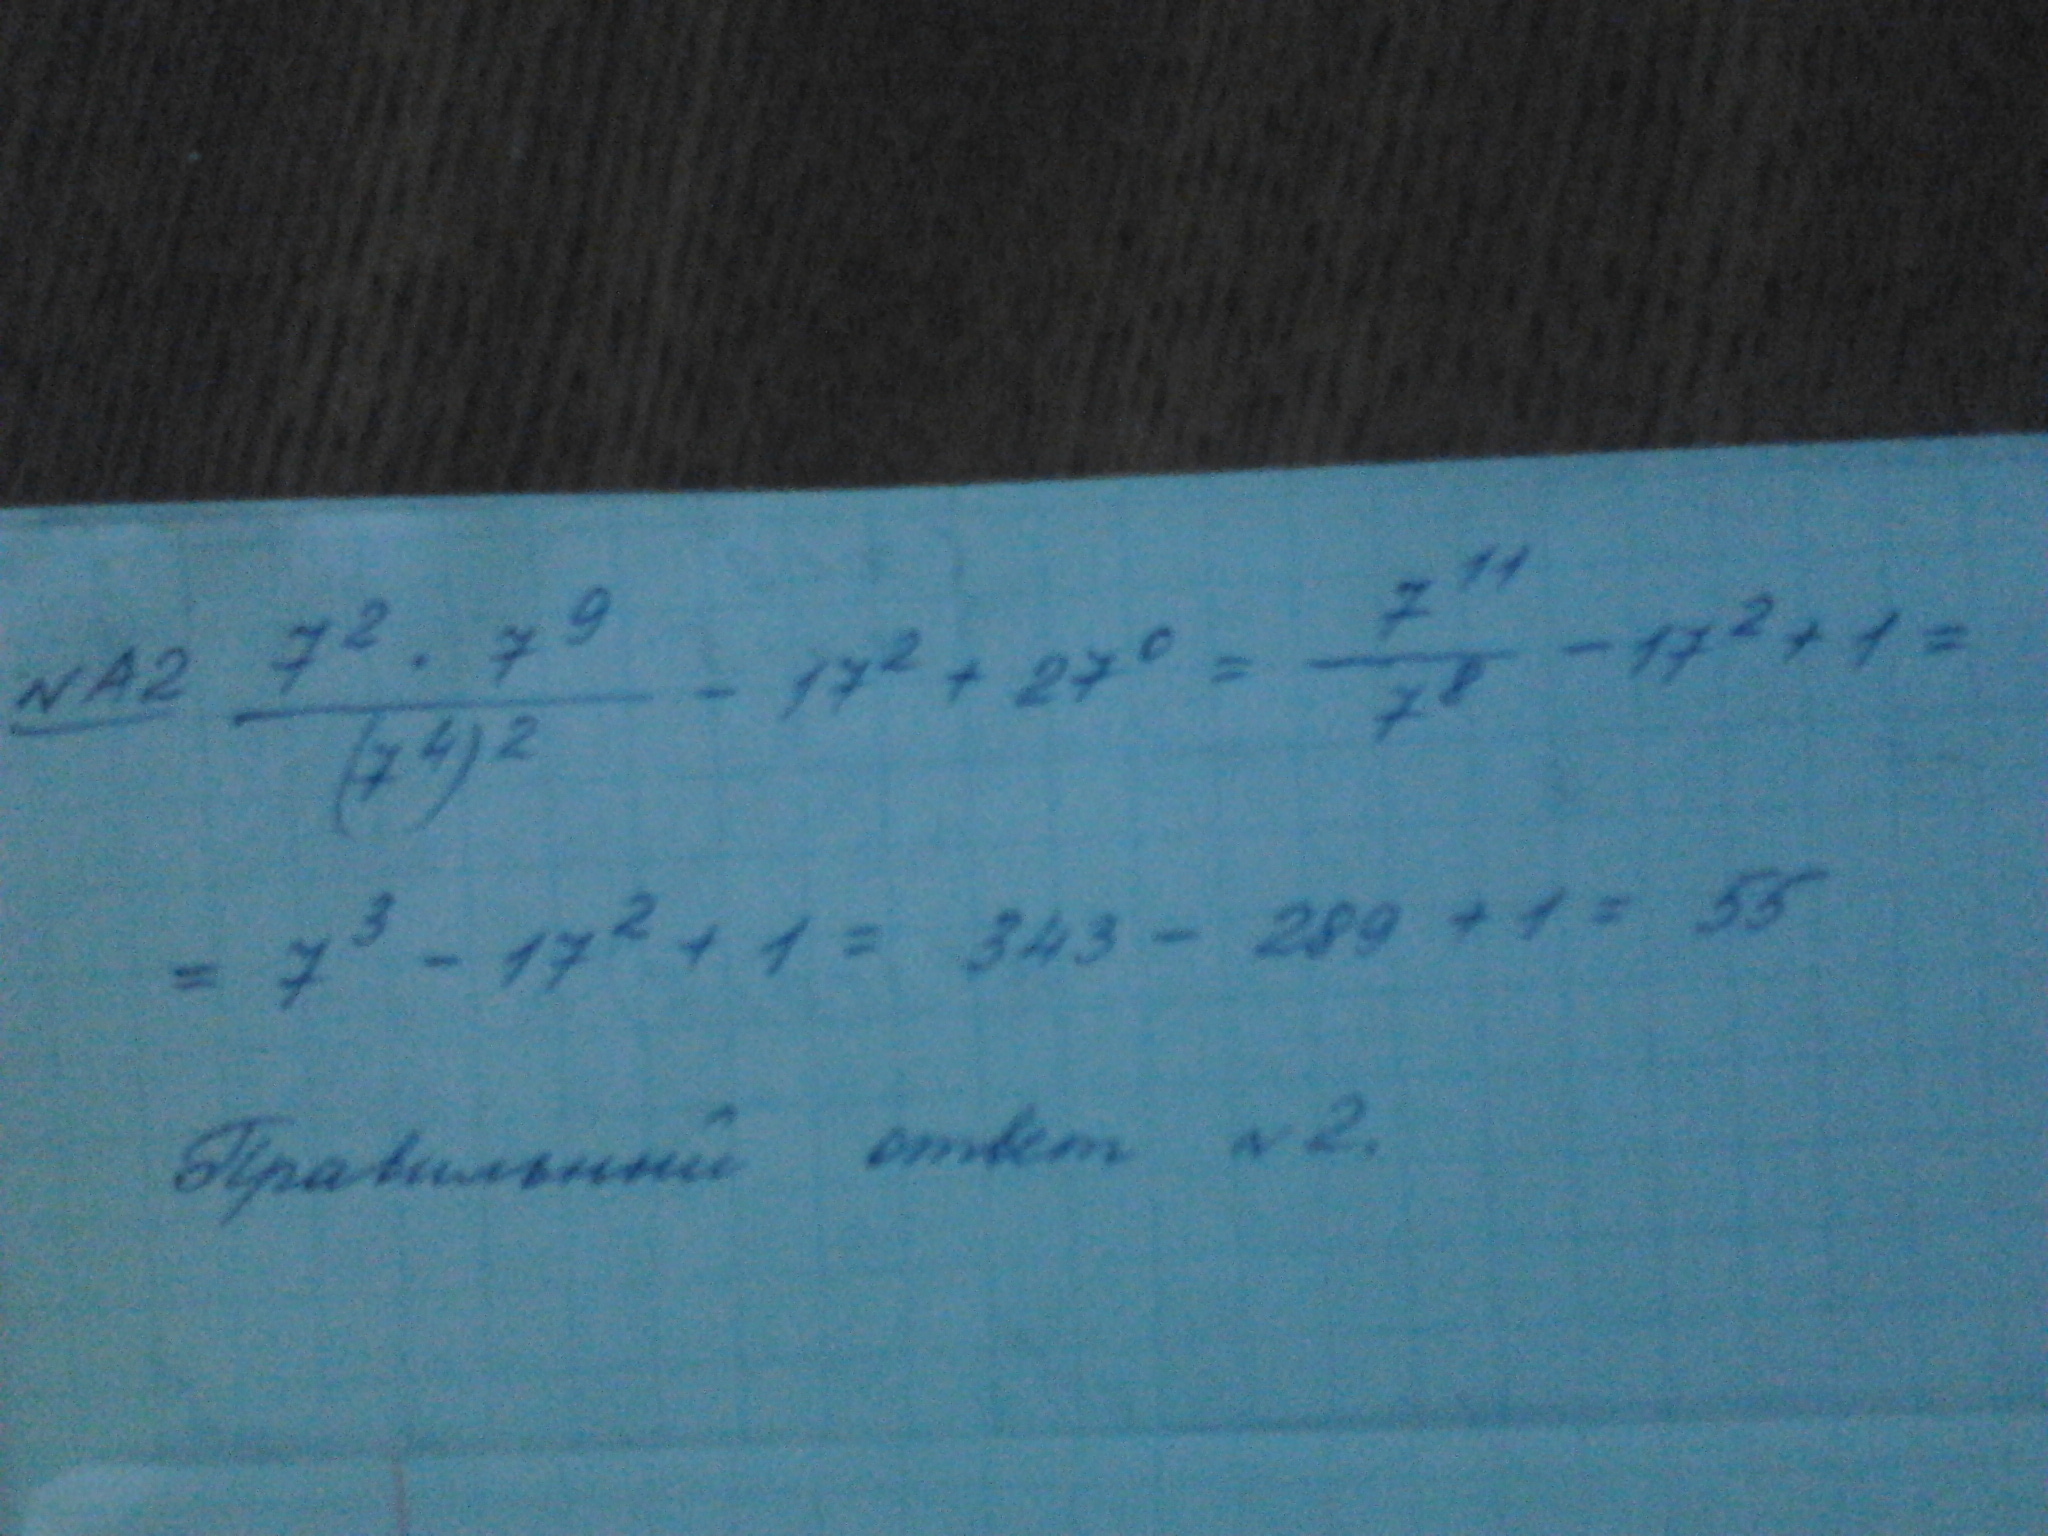 №A2 7² · 7⁹ / (7⁴)² - 17² + 27⁰ = 7¹¹ / 7⁸ - 17² + 1 =
= 7³ - 17² + 1 = 343 - 289 + 1 = 55
Правильный ответ №2.